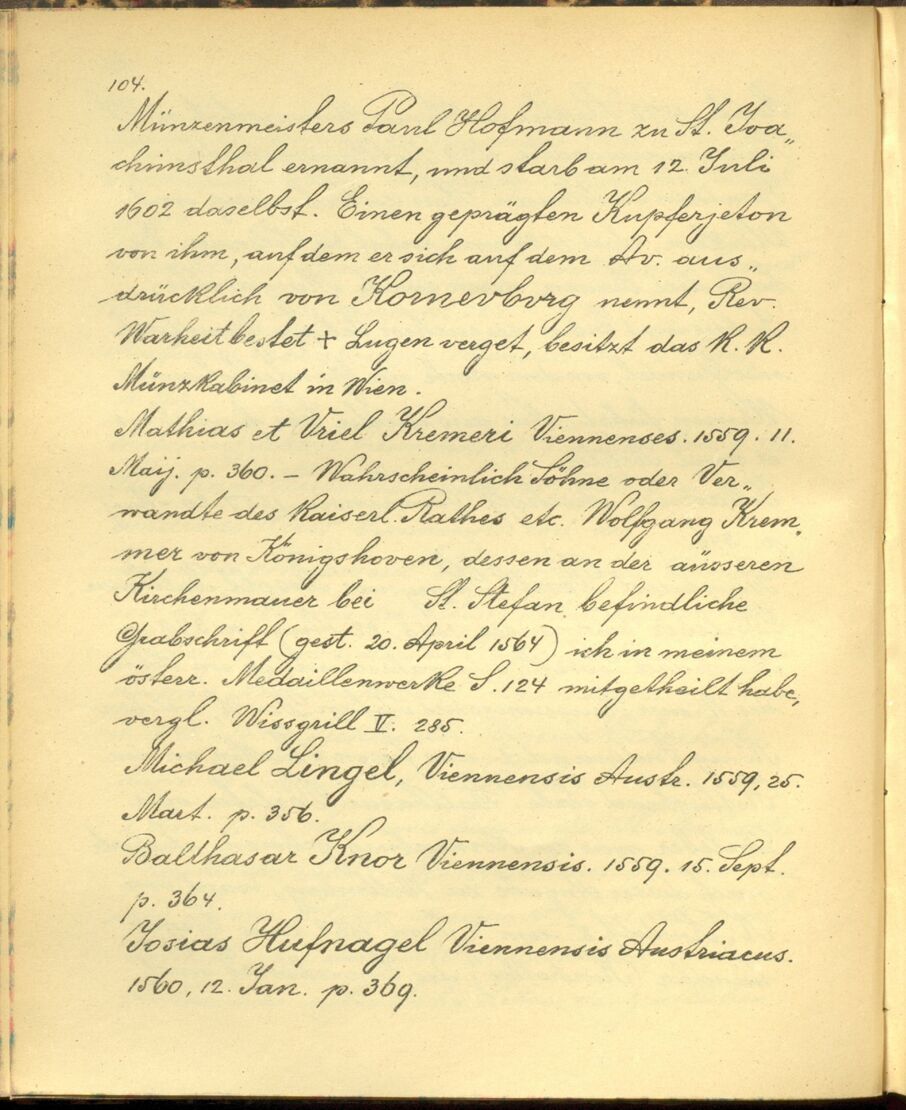 104.
Münzenmeisters Paul Hofmann zu St. Joa„
chimsthal ernannt, und starb am 12. Juli
1602 daselbst. Einen geprägten Kupferjeton
von ihm, auf dem er sich auf dem Av. aus„
drücklich von Kornevbvrg nennt, Rev.
Warheit bestet + Lugen verget, besitzt das K. K.
Münzkabinet in Wien.
Mathias et Vriel Kremeri Viennenses. 1559. 11.
Maij. p. 360. – Wahrscheinlich Söhne oder Ver„
wandte des Kaiserl. Rathes etc. Wolfgang Krem„
mer von Königshoven, dessen an der äusseren
Kirchenmauer bei St. Stefan befindliche
Grabschrift (gest. 20. April 1564) ich in meinem
österr. Medaillenwerke S. 124 mitgetheilt habe,
vergl. Wissgrill V. 285.
Michael Lingel, Viennensis Austr. 1559, 25.
Mart. p. 356.
Balthasar Knor Viennensis. 1559. 15. Sept.
p. 364.
Josias Hufnagel Viennensis Austriacus.
1560, 12. Jan. p. 369.